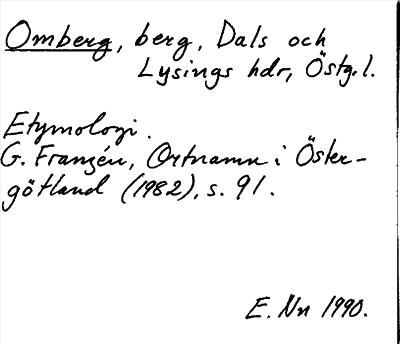 Omberg, berg, Dals och
Lysings hdr, Östg.l.
Etymologi.
G. Franzén, Ortnamn i Öster-
götland (1982), s. 91.
E. Nn 1990.